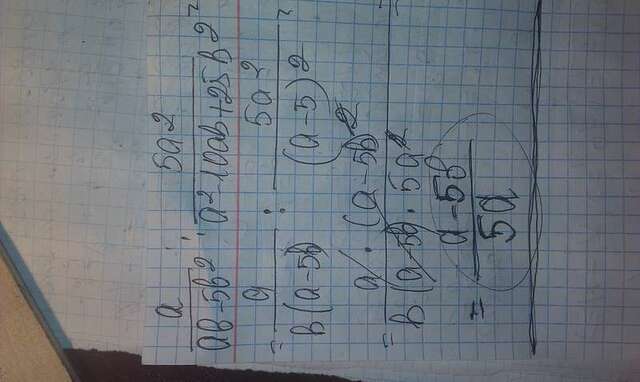 a/(ab-5b²) : 5a²/(a²-10ab+25b²) =
= a/(b(a-5b) : 5a²/(a-5)² =
= a·(a-5b)²/(b(a-5b)·5a²) =
= (a-5b)/(5a)